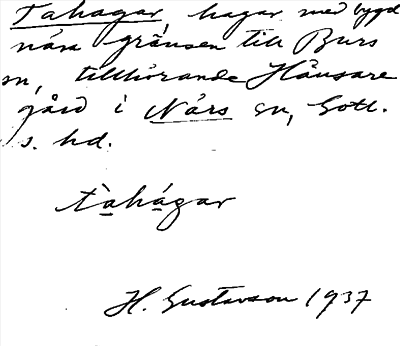 Tahagar, hagar med bygd
nära gränsen till Burs
sn, tillhörande Hänsare
gård i Närs sn, Gotl.
s. hd.
tàhágar
H. Gustavson 1937